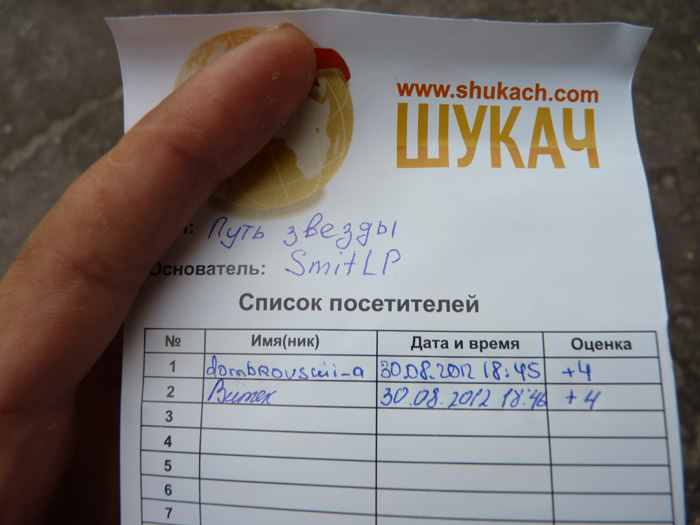 www.shukach.com
ШУКАЧ
Путь звезды
Основатель: SmitLP
Список посетителей
№ Имя(ник) Дата и время Оценка
1 dombrovskii-a 30.08.2012 18:45 +4
2 30.08.2012 18:46 +4
3
4
5
6
7